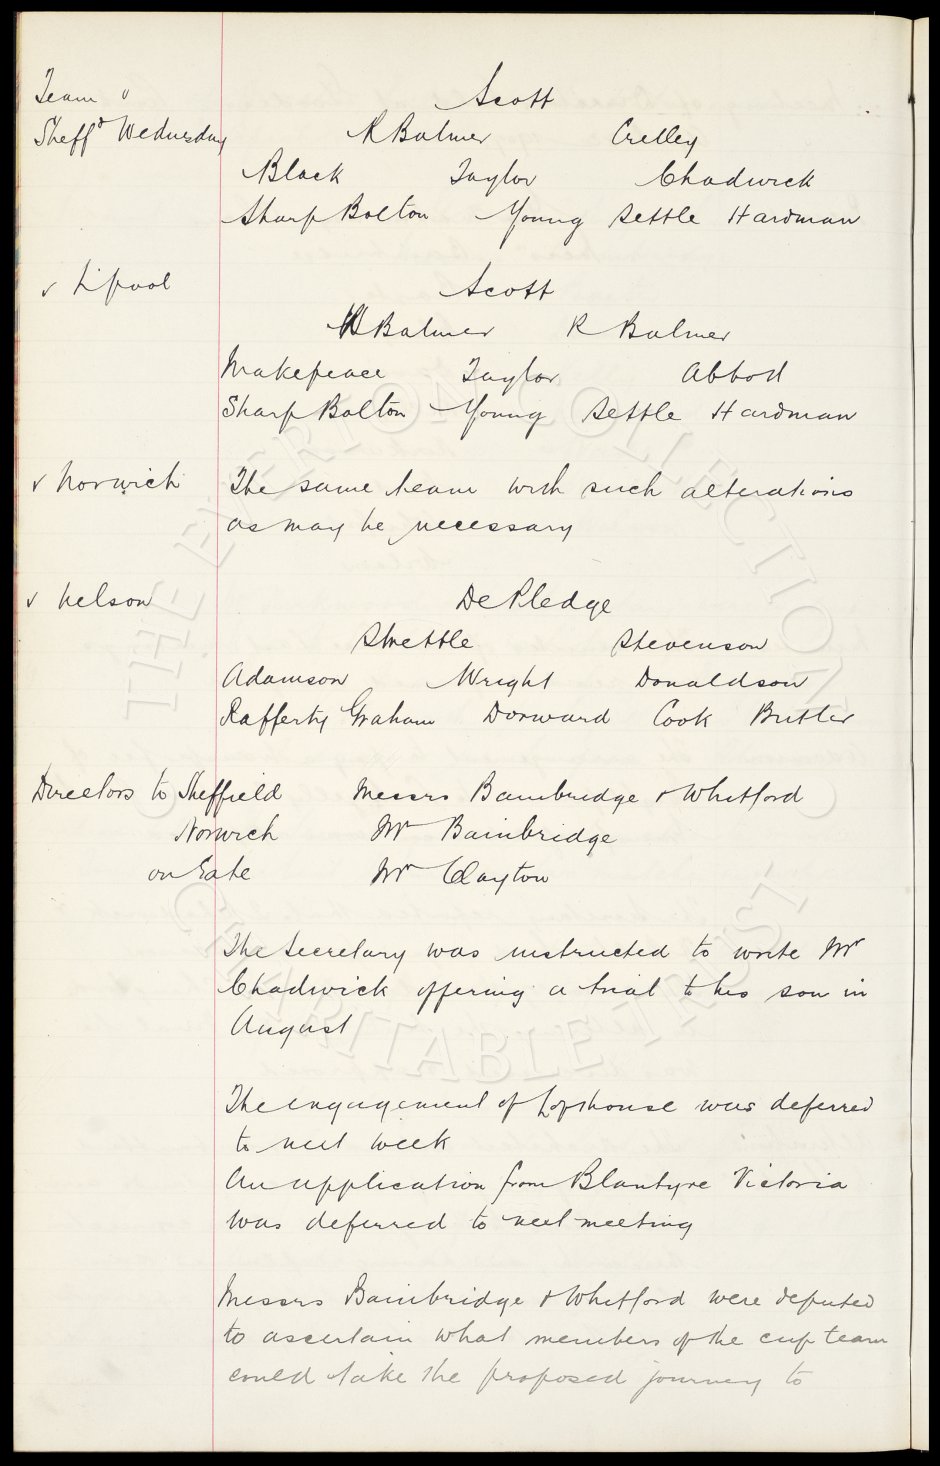 Team v Scott
Sheffd Wednesday R Balmer Crelley
Black Taylor Chadwick
Sharp Bolton Young Settle Hardman
v L'pool Scott
W Balmer R Balmer
Makepeace Taylor Abbott
Sharp Bolton Young Settle Hardman
v Norwich The same team with such alterations
as may be necessary
v Nelson De Pledge
Strettle Stevenson
Adamson Wright Donaldson
Rafferty Graham Dorward Cook Butler
Directors to Sheffield Messrs Bainbridge & Whitford
Norwich Mr Bainbridge
on Gate Mr Clayton
The Secretary was instructed to write Mr
Chadwick offering a trial to his son in
August
The engagement of Lofthouse was deferred
to next week
An application from Blantyre Victoria
was deferred to next meeting
Messrs Bainbridge & Whitford were deputed
to ascertain what members of the cup team
could take the proposed journey to
THE EVERTON COLLECTION
CHARITABLE TRUST